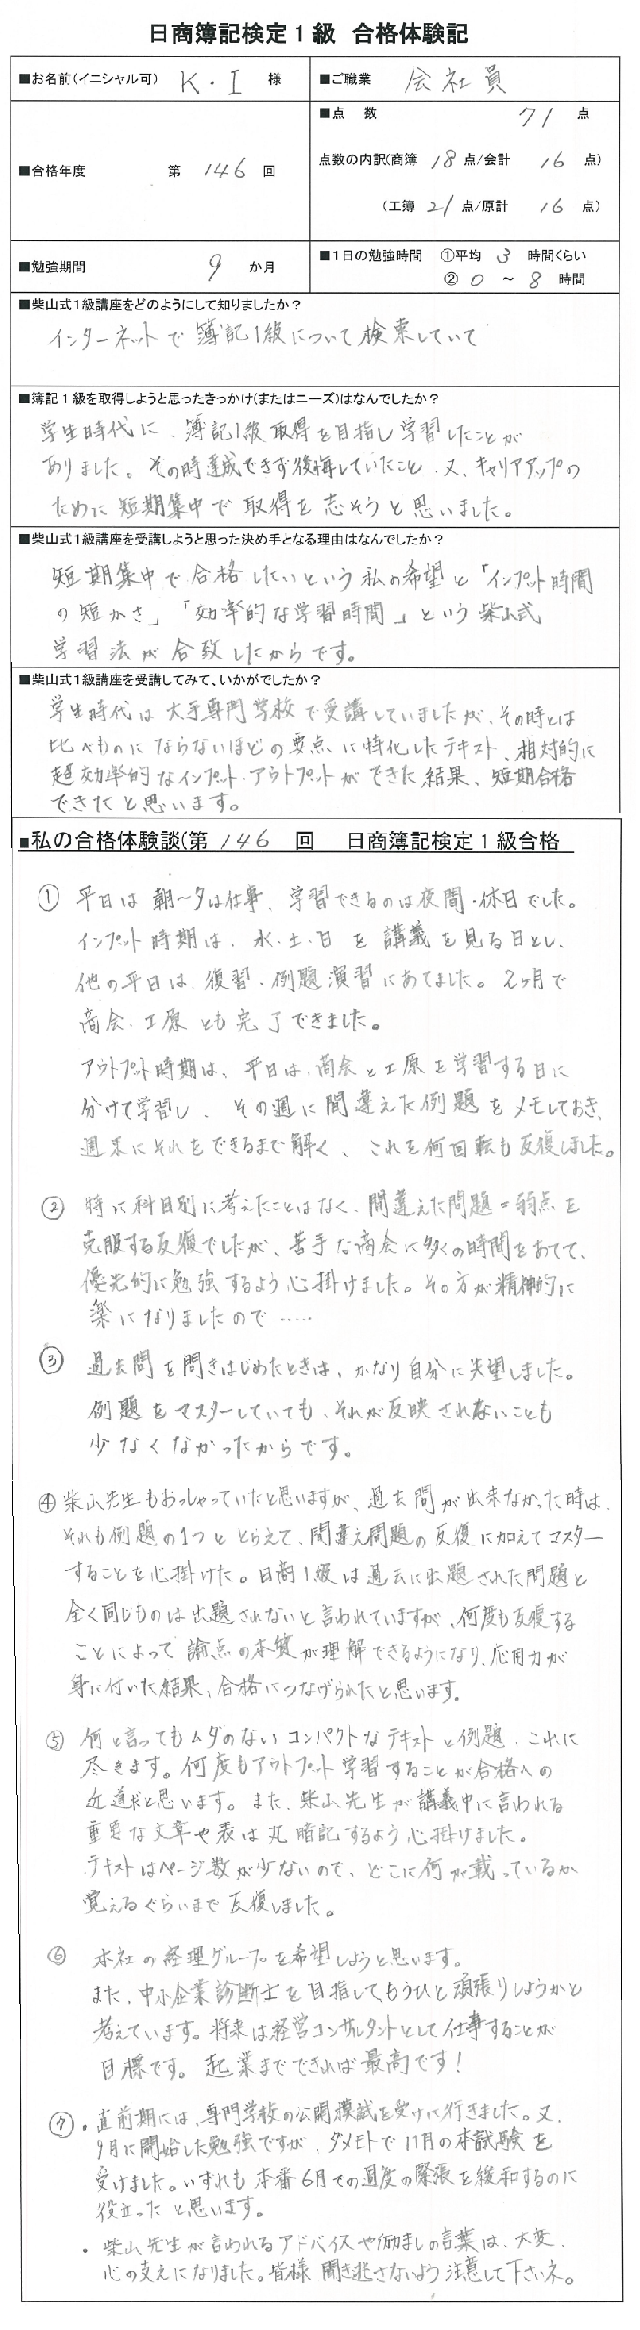 日商簿記検定1級 合格体験記
■お名前(イニシャル可) K.I 様
■ご職業 会社員
■合格年度 第 146 回
■点 数 71 点
点数の内訳(商簿 18 点/会計 16 点)
(工簿 21 点/原計 16 点)
■勉強期間 9 か月
■1日の勉強時間 ①平均 3 時間くらい
② 0 ～ 8 時間
■柴山式1級講座をどのようにして知りましたか?
インターネットで簿記1級について検索していて
■簿記1級を取得しようと思ったきっかけ(またはニーズ)はなんでしたか?
学生時代に、簿記1級取得を目指し学習したことが
ありました。その時達成できず後悔していたこと、又、キャリアアップの
ために短期集中で取得を志そうと思いました。
■柴山式1級講座を受講しようと思った決め手となる理由はなんでしたか?
短期集中で合格したいという私の希望と「インプット時間
の短かさ」「効率的な学習時間」という柴山式
学習法が合致したからです。
■柴山式1級講座を受講してみて、いかがでしたか?
学生時代は大手専門学校で受講していましたが、その時とは
比べものにならないほどの要点に特化したテキスト、相対的に
超効率的なインプット・アウトプットができた結果、短期合格
できたと思います。
■私の合格体験談(第 146 回 日商簿記検定1級合格
① 平日は朝～夕は仕事、学習できるのは夜間・休日でした。
インプット時期は、水・土・日を講義を見る日とし、
他の平日は、復習・例題演習にあてました。2ヶ月で
商会・工原とも完了できました。
アウトプット時期は、平日は、商会と工原を学習する日に
分けて学習し、その週に間違えた例題をメモしておき、
週末にそれをできるまで解く、これを何回転も反復しました。
② 特に科目別に考えたことはなく、間違えた問題=弱点を
克服する反復でしたが、苦手な商会に多くの時間をあてて、
優先的に勉強するよう心掛けました。その方が精神的に
楽になりましたので……
③ 過去問を問きはじめたときは、かなり自分に失望しました。
例題をマスターしていても、それが反映されないことも
少なくなかったからです。
④ 柴山先生もおっしゃっていたと思いますが、過去問が出来なかった時は、
それも例題の1つととらえて、間違え問題の反復に加えてマスター
することを心掛けた。日商1級は過去に出題された問題と
全く同じものは出題されないと言われていますが、何度も反復する
ことによって論点の本質が理解できるようになり、応用力が
身に付いた結果、合格につなげられたと思います。
⑤ 何と言ってもムダのないコンパクトなテキストと例題、これに
尽きます。何度もアウトプット学習することが合格への
近道だと思います。また、柴山先生が講義中に言われる
重要な文章や表は丸暗記するよう心掛けました。
テキストはページ数が少ないので、どこに何が載っているか
覚えるぐらいまで反復しました。
⑥ 本社の経理グループを希望しようと思います。
また、中小企業診断士を目指して、もうひと頑張りしようかと
考えています。将来は経営コンサルタントとして仕事することが
目標です。起業までできれば最高です!
⑦・直前期には、専門学校の公開模試を受けに行きました。又、
9月に開始した勉強ですが、ダメモトで11月の本試験を
受けました。いずれも本番6月での過度の緊張を緩和するのに
役立ったと思います。
・柴山先生が言われるアドバイスや励ましの言葉は、大変、
心の支えになりました。皆様、聞き逃さないよう注意して下さいネ。